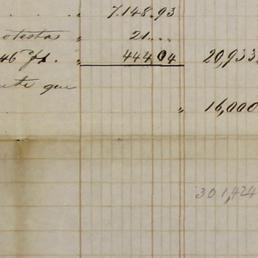 " 7.148.93
otestas " 21...
46 f1. " 444,04 20,933
ente que
" 16,000
301,424